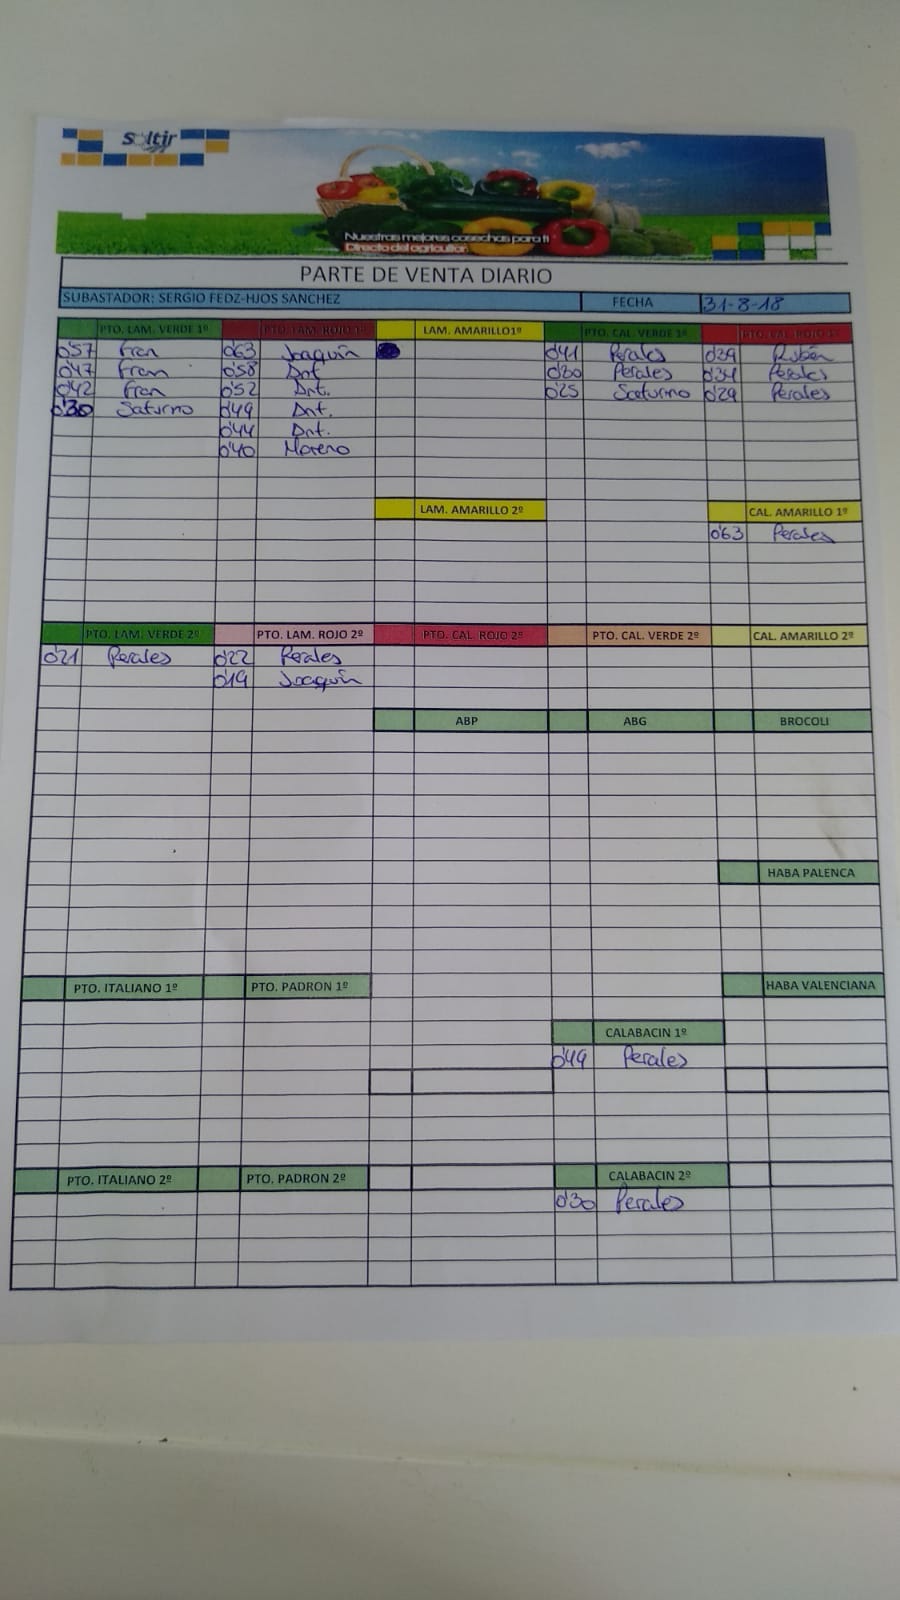 Soltir
Nuestras mejores cosechas para ti
Directo del agricultor
PARTE DE VENTA DIARIO
SUBASTADOR: SERGIO FEDZ-HJOS SANCHEZ FECHA 31-8-18
PTO. LAM. VERDE 1º PTO. LAM. ROJO 1º LAM. AMARILLO1º PTO. CAL. VERDE 1º PTO. CAL. ROJO 1º
0'57 Fran 0'63 Joaquín 0'41 Perales 0'39 Rubén
0'47 Fran 0'58 Dnt 0'30 Perales 0'34 Perales
0'42 Fran 0'52 Dnt. 0'25 Saturno 0'29 Perales
0'30 Saturno 0'49 Dnt.
0'44 Dnt.
0'40 Moreno
LAM. AMARILLO 2º CAL. AMARILLO 1º
0'63 Perales
PTO. LAM. VERDE 2º PTO. LAM. ROJO 2º PTO. CAL. ROJO 2º PTO. CAL. VERDE 2º CAL. AMARILLO 2º
0'21 Perales 0'22 Perales
0'19 Joaquín
ABP ABG BROCOLI
HABA PALENCA
PTO. ITALIANO 1º PTO. PADRON 1º HABA VALENCIANA
CALABACIN 1º
0'49 Perales
PTO. ITALIANO 2º PTO. PADRON 2º CALABACIN 2º
0'30 Perales